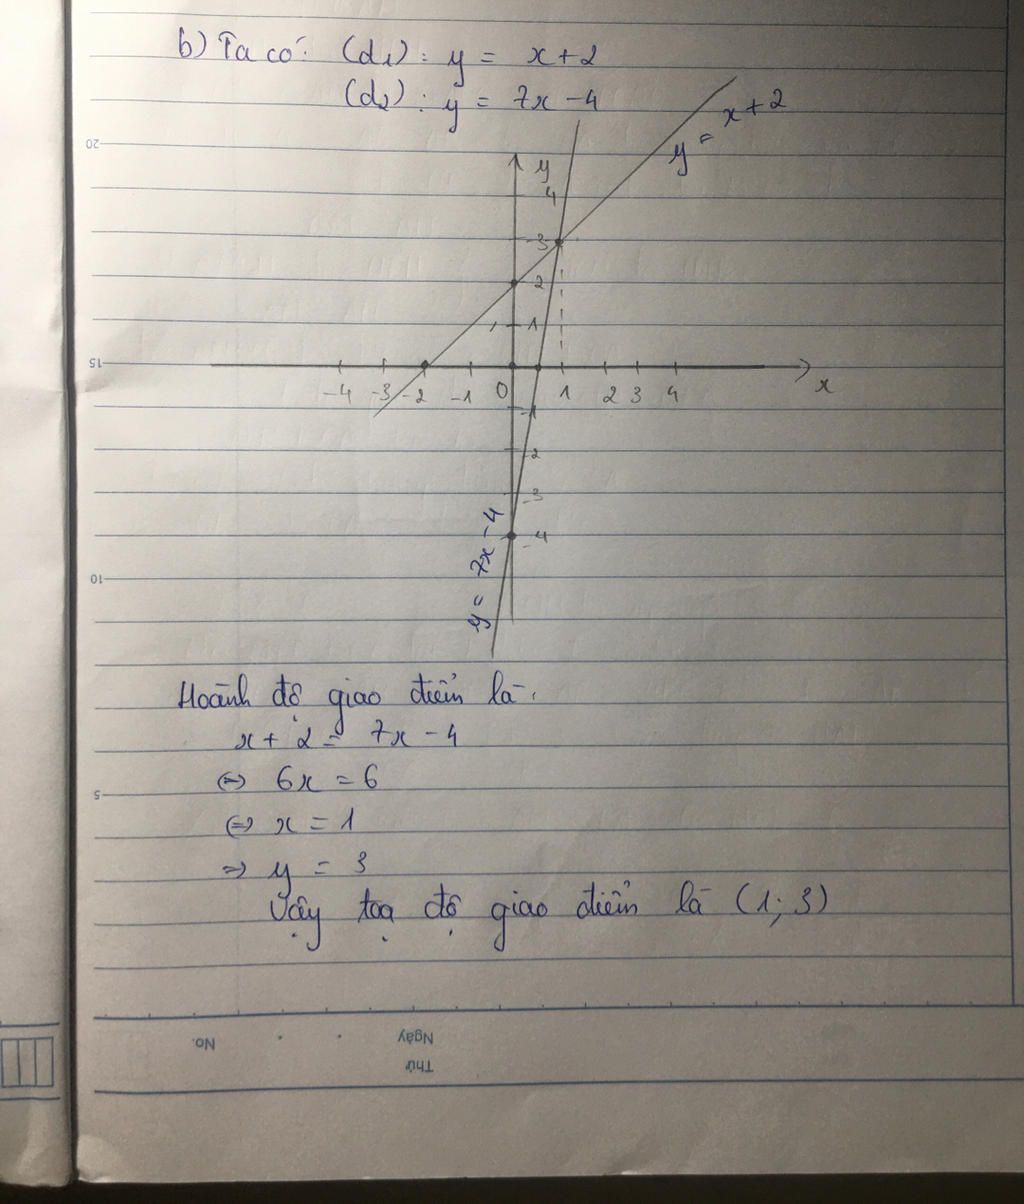 b) Ta có: (d₁): y = x+2
(d₂): y = 7x -4
y = x+2
20
y
4
3
2
1
15
-4 -3 -2 -1 0 1 2 3 4 x
-1
-2
-3
-4
y = 7x -4
10
Hoành độ giao điểm là:
x + 2 = 7x - 4
⇔ 6x = 6
5
⇔ x = 1
⇒ y = 3
Vậy tọa độ giao điểm là (1; 3)
No.
Ngày
Thứ